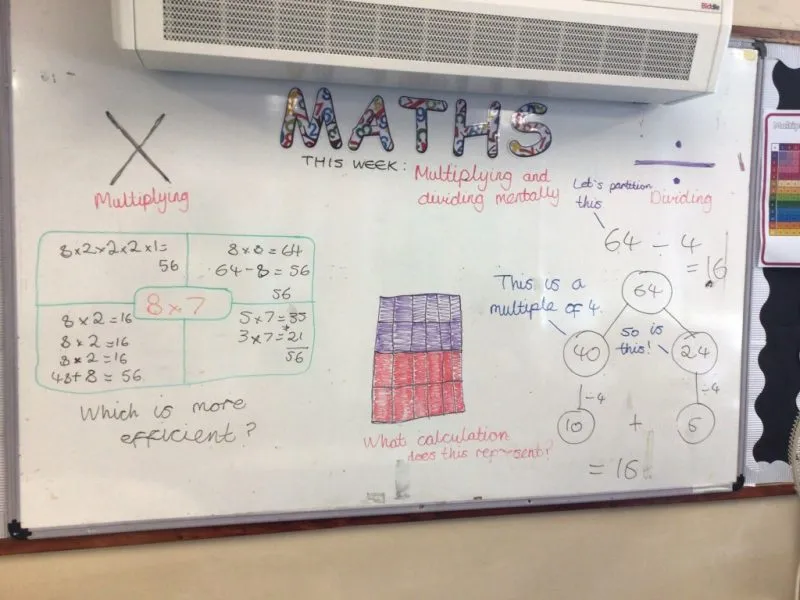 Biddle
MATHS
THIS WEEK: Multiplying and
dividing mentally
×
Multiplying
8×2×2×2×1=
56
8×8=64
64-8=56
56
8×7
8×2=16
8×2=16
8×2=16
48+8=56
5×7=35
+
3×7=21
56
Which is more
efficient?
What calculation
does this represent?
÷
Dividing
Let's partition
this
64 ÷ 4
=16
This is a
multiple of 4.
64
so is
this!
40
24
÷4
÷4
10
+
6
=16